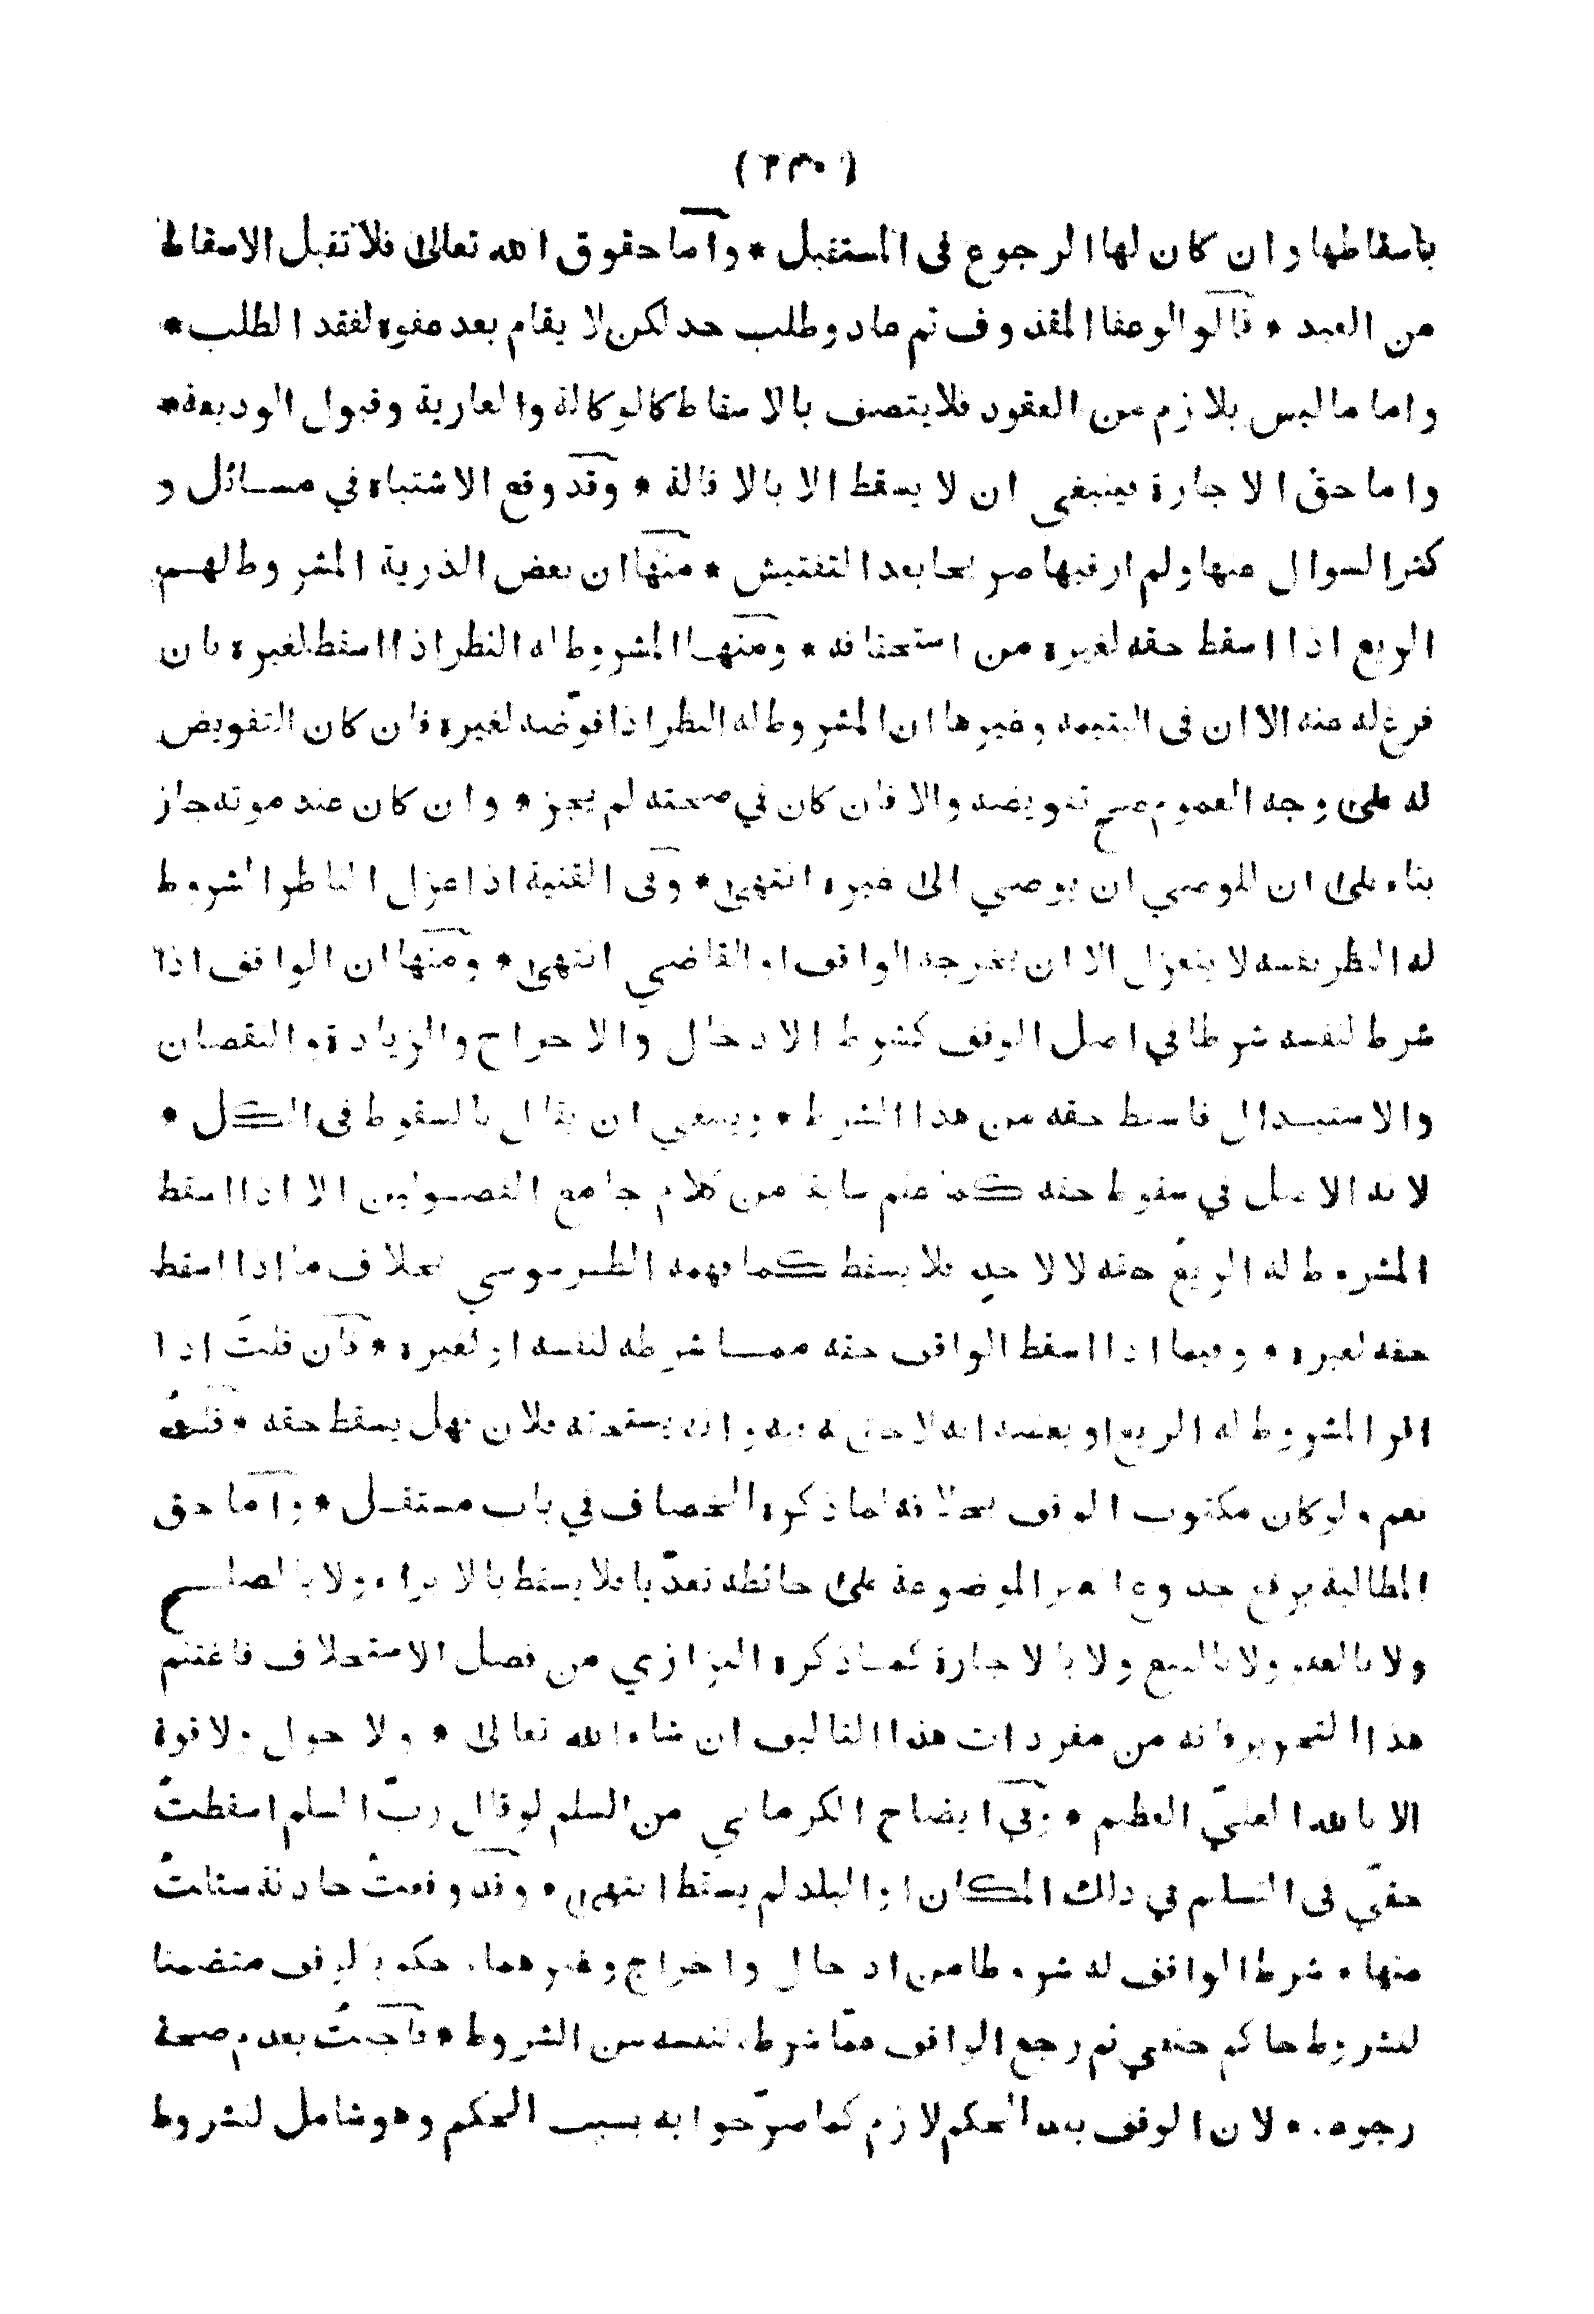 (٢٣٠)
باسقاطها وان كان لها الرجوع فى المستقبل * واما حقوق الله تعالى فلا تقبل الاسقاط
من العبد * قالوا لو عفا المقذوف ثم عاد وطلب حد لكن لا يقام بعد عفوه لفقد الطلب *
واما ما ليس بلازم من العقود فلا يتصف بالاسقاط كالوكالة والعارية وقبول الوديعة *
واما حق الاجارة فينبغى ان لا يسقط الا بالاقالة * وقد وقع الاشتباه في مسائل و
كثر السوال عنها ولم ار فيها صريحا بعد التفتيش * منها ان بعض الذرية المشروط لهم
الريع اذا اسقط حقه لغيره من استحقاقه * ومنها المشروط له النظر اذا اسقط لغيره بان
فرغ له عنه الا ان فى اليتيمة وغيرها ان المشروط له النظر اذا فوّضه لغيره فان كان التفويض
له على وجه العموم صح تفويضه والا فان كان في صحته لم يجز * وان كان عند موته جاز
بناء على ان للوصي ان يوصي الى غيره انتهى * وفى القنية اذا عزل الناظر المشروط
له النظر نفسه لا ينعزل الا ان يخرجه الواقف او القاضي انتهى * ومنها ان الواقف اذا
شرط لنفسه شرطا في اصل الوقف كشرط الادخال والاخراج والزيادة والنقصان
والاستبدال فاسقط حقه من هذا الشرط * وينبغي ان يقال بالسقوط فى الكل *
لانه الاصل في سقوط حقه كما علم سابقا من كلام جامع الفصولين الا اذا اسقط
المشروط له الريع حقه لا لاحد فلا يسقط كما فهمه الطرسوسي بخلاف ما اذا اسقط
حقه لغيره * وفيما اذا اسقط الواقف حقه مما شرطه لنفسه او لغيره * فان قلتَ اذا
اقر المشروط له الريع او بعضه انه لا حق له فيه وانه يستحقه فلان فهل يسقط حقه * قلتُ
نعم ولو كان مكتوب الوقف بخلافه لما ذكره الخصاف في باب مستقل * واما حق
المطالبة برفع جذوع الغير الموضوعة على حائطه تعدّيا فلا يسقط بالابراء ولا بالصلح
ولا بالعفو ولا بالبيع ولا بالاجارة كما ذكره البزازي من فصل الاستحلاف فاغتنم
هذا التحرير فانه من مفردات هذا التاليف ان شاء الله تعالى * ولا حول ولا قوة
الا بالله العليّ العظيم * وفي ايضاح الكرماني من السلم لو قال ربّ السلم اسقطتُ
حقيّ فى التسليم في ذلك المكان او البلد لم يسقط انتهى * وقد وقعتْ حادثة سئلتُ
عنها * شرط الواقف له شروطا من ادخال واخراج وغيرهما، حكم بالوقف متضمنا
لشروط حاكم حنفي ثم رجع الواقف عمّا شرطه لنفسه من الشروط * فاجبتُ بعدم صحة
رجوعه * لان الوقف بعد الحكم لازم كما صرّحوا به بسبب الحكم وهو شامل لشروط